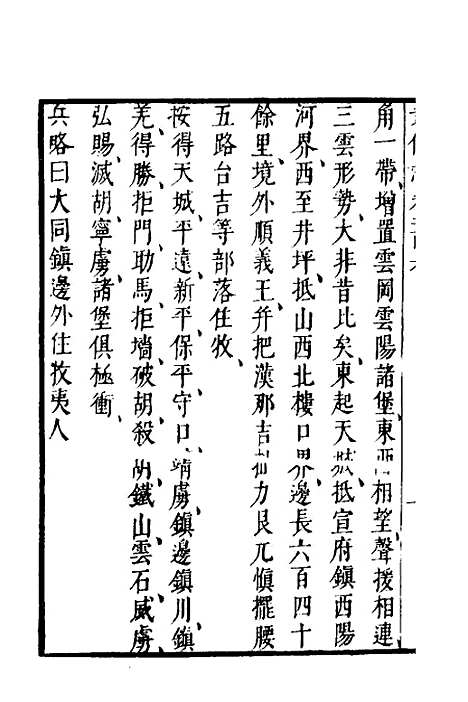 角一帶增置雲岡雲陽諸堡東西相望聲援相連
三雲形勢大非昔比矣東起天城抵宣府鎮西陽
河界西至井坪抵山西北樓口界邊長六百四十
餘里境外順義王并把漢那吉扯力艮兀慎擺腰
五路台吉等部落住牧
按得天城平遠新平保平守口靖虜鎮邊鎮川鎮
羌得勝拒門助馬拒墻破胡殺胡鐵山雲石威虜
弘賜滅胡寧虜諸堡俱極衝
兵略曰大同鎮邊外住牧夷人